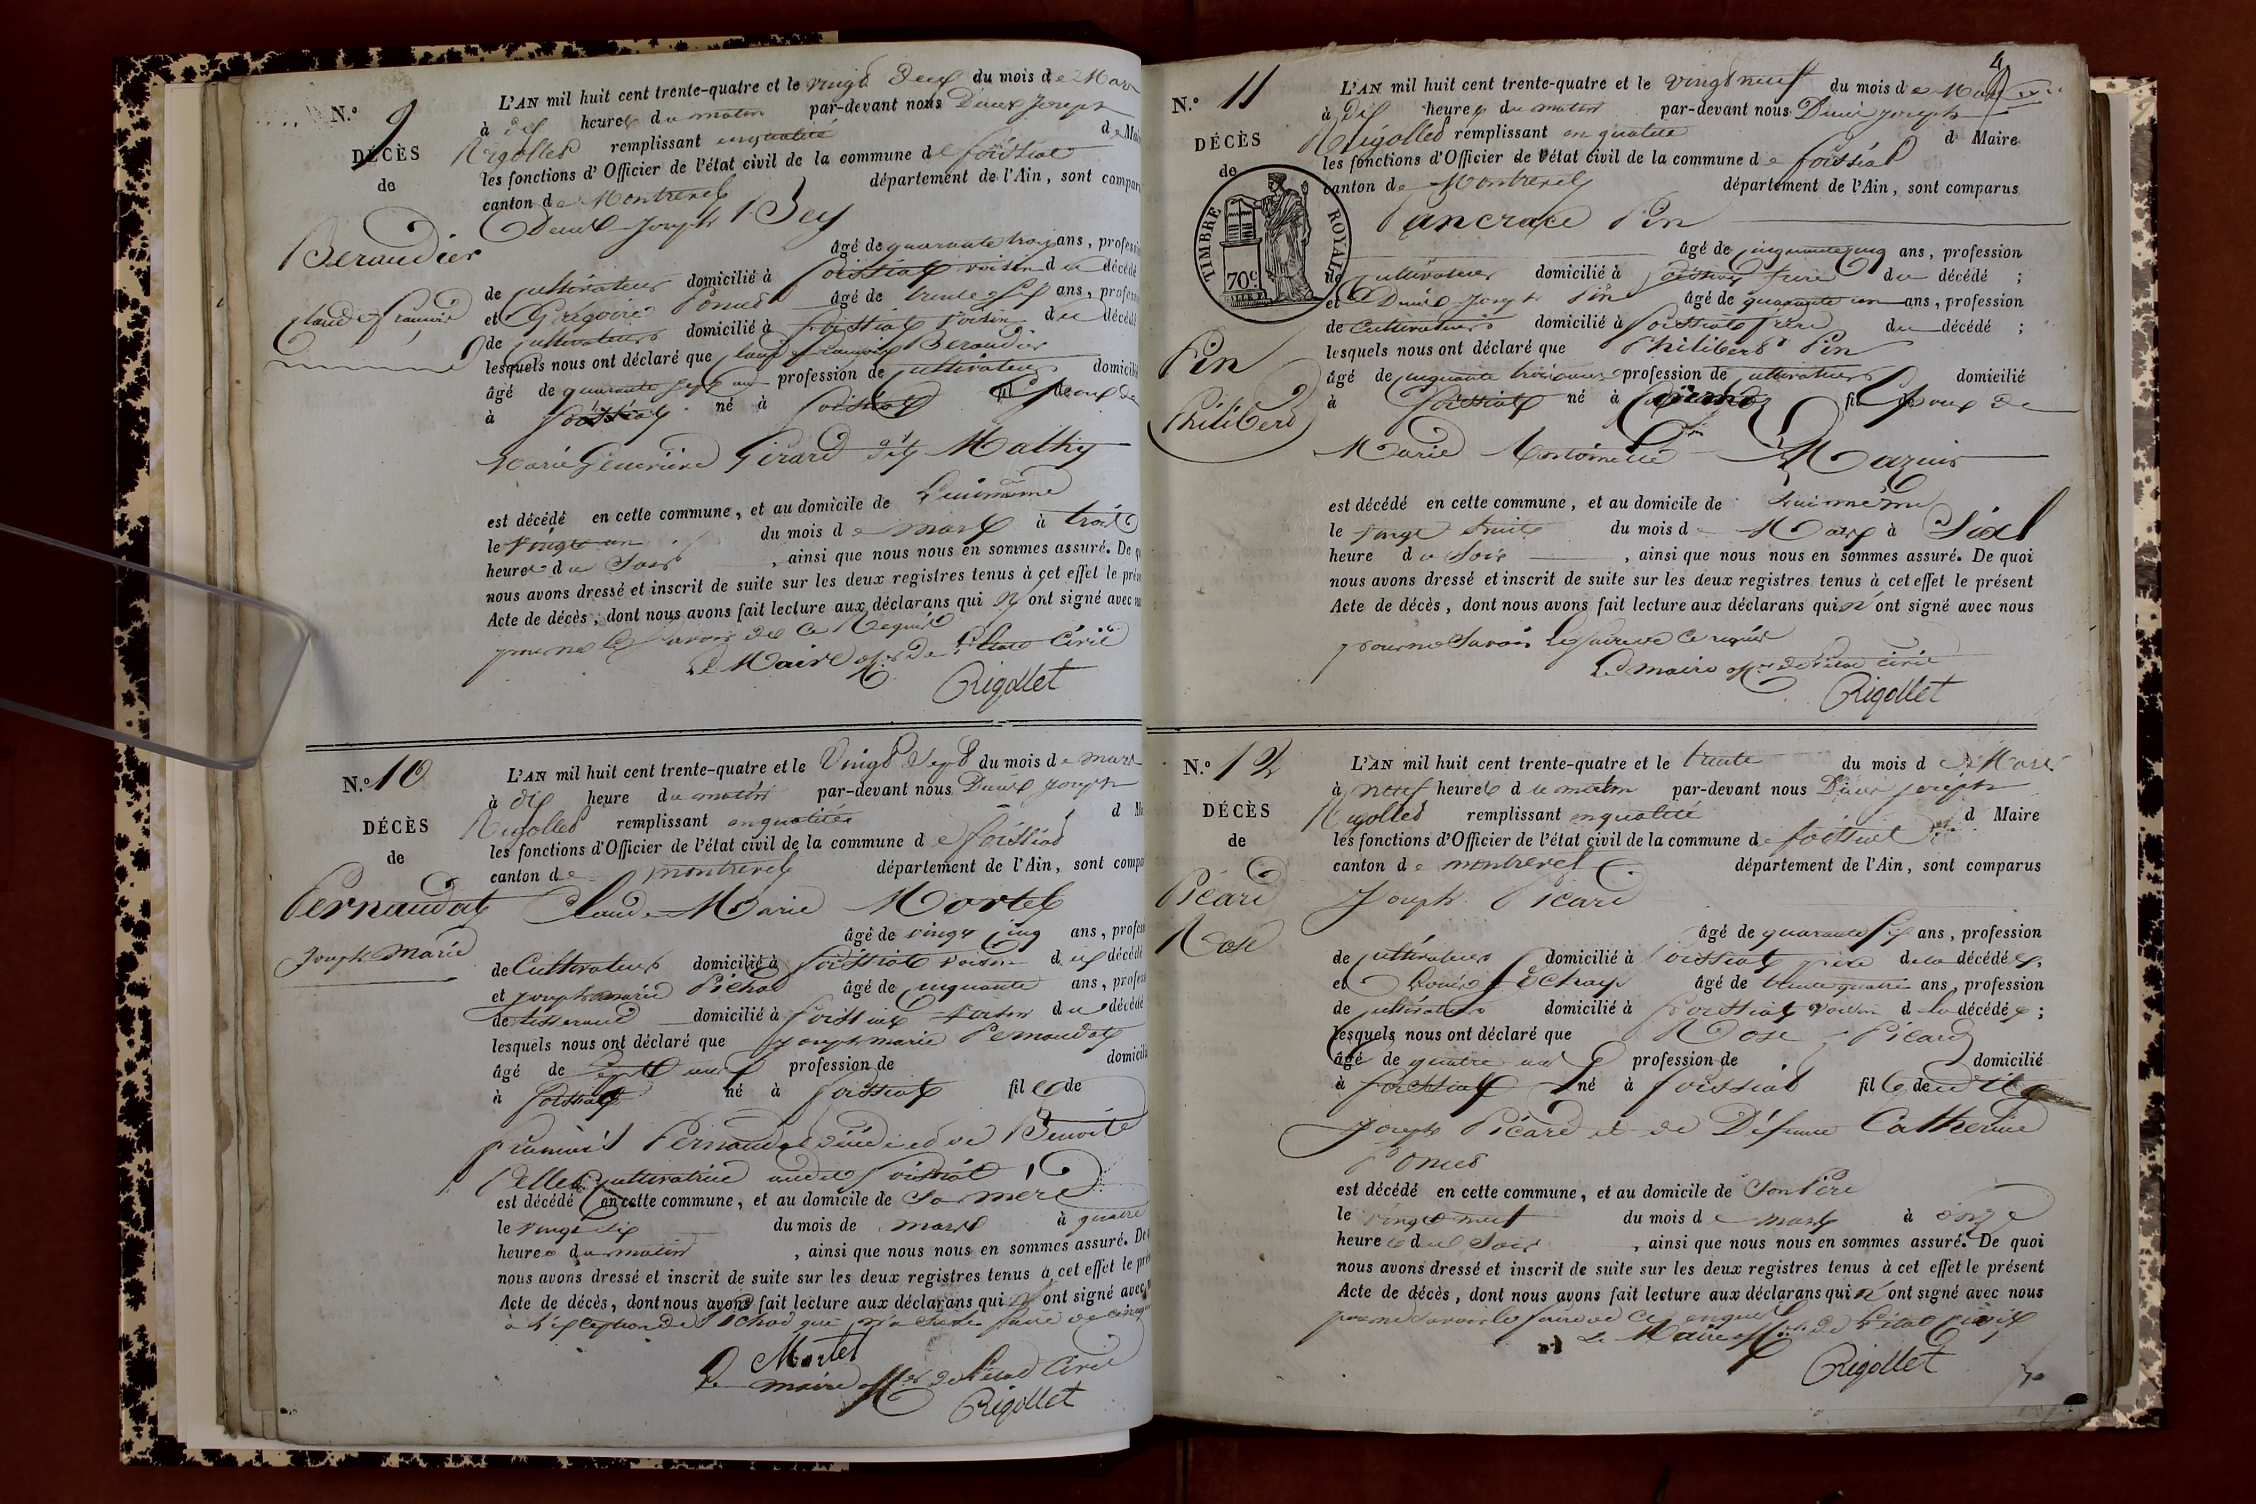 N.º 9
L'AN mil huit cent trente-quatre et le vingt Deux du mois de Mars
à dix heures du matin par-devant nous Denis Joseph
DÉCÈS
Rigollet remplissant en qualité de Mai
les fonctions d'Officier de l'état civil de la commune de foissiat
de
canton de Montrevel département de l'Ain, sont compar
Denis Joseph Bey
Beraudier
âgé de quarante trois ans, profess
de cultivateur domicilié à foissiat voisin du décédé
Claude François
et Grégoire Poncet âgé de trente six ans, profess
de cultivateur domicilié à foissiat voisin du décédé
lesquels nous ont déclaré que Claude françois Beraudier
âgé de quarante sept ans profession de cultivateur domicilié
à foissiat né à foissiat époux de
Marie Genevière Girard dit Mathy
est décédé en cette commune, et au domicile de Lui même
le vingt un du mois de mars à trois
heures du Soir, ainsi que nous nous en sommes assuré. De q
nous avons dressé et inscrit de suite sur les deux registres tenus à cet effet le prése
Acte de décès, dont nous avons fait lecture aux déclarans qui n' ont signé avec n
pour ne le savoir de ce Requis
Le Maire off.er de l'état Civil
Rigollet
N.º 10
L'AN mil huit cent trente-quatre et le Vingt Sept du mois de mars
à dix heure du matin par-devant nous Denis Joseph
DÉCÈS
Rigollet remplissant en qualité d Ma
les fonctions d'Officier de l'état civil de la commune de foissiat
de
canton de montrevel département de l'Ain, sont compa
Pernaudat
Claude Marie Mortel
âgé de vingt cinq ans, profess
Joseph Marie
de Cultivateur domicilié à foissiat voisin du décédé
et joseph marie Pichod âgé de cinquante ans, profess
de tisserand domicilié à foissiat voisin du décédé
lesquels nous ont déclaré que joseph marie Pernaudat
âgé de Sept ans profession de domicili
à foissiat né à foissiat fils de
françois Pernaudat décédé et de Benoite
cultivatrice audit foissiat
est décédé en cette commune, et au domicile de Sa mère
le vingt six du mois de mars à quatre
heures du matin, ainsi que nous nous en sommes assuré. De
nous avons dressé et inscrit de suite sur les deux registres tenus à cet effet le prés
Acte de décès, dont nous avons fait lecture aux déclarans qui ont signé avec
à l'exception de Pichod qui n'a Su le faire de ce requis
Mortel
Le maire off.er de l'état Civil
Rigollet
4
N.º 11
L'AN mil huit cent trente-quatre et le vingt neuf du mois de Mars
à dix heures du matin par-devant nous Denis joseph
DÉCÈS
Rigollet remplissant en qualité d Maire
les fonctions d'Officier de l'état civil de la commune de foissiat
de
canton de Montrevel département de l'Ain, sont comparus
TIMBRE ROYAL
70 c
Pancrace Pin
âgé de cinquante cinq ans, profession
de cultivateur domicilié à foissiat frere du décédé ;
et Denis Joseph Pin âgé de quarante un ans, profession
de cultivateur domicilié à foissiat frère du décédé ;
Pin
lesquels nous ont déclaré que Philibert Pin
âgé de cinquante trois ans profession de cultivateur domicilié
Philibert
à foissiat né à fil époux de
Marie Antoinette Mazuir
est décédé en cette commune, et au domicile de Lui même
le vingt huit du mois de Mars à Six
heure du Soir, ainsi que nous nous en sommes assuré. De quoi
nous avons dressé et inscrit de suite sur les deux registres tenus à cet effet le présent
Acte de décès, dont nous avons fait lecture aux déclarans qui n' ont signé avec nous
pour ne Savoir le faire de ce requis
Le maire off.er de l'état civil
Rigollet
N.º 12
L'AN mil huit cent trente-quatre et le trente du mois de Mars
à neuf heures du matin par-devant nous Denis joseph
DÉCÈS
Rigollet remplissant en qualité d Maire
les fonctions d'Officier de l'état civil de la commune de foissiat
de
canton de montrevel département de l'Ain, sont comparus
Picard
Joseph Picard
Rose
âgé de quarante six ans, profession
de cultivateur domicilié à foissiat père de la décédée,
et Louis âgé de trente quatre ans, profession
de cultivateur domicilié à foissiat voisin de la décédée ;
lesquels nous ont déclaré que Rose Picard
âgé de quatre ans profession de domicilié
à foissiat né à foissiat fille de dit
Joseph Picard et de Défunte Catherine
Poncet
est décédé en cette commune, et au domicile de Son Père
le vingt neuf du mois de mars à onze
heures du Soir, ainsi que nous nous en sommes assuré. De quoi
nous avons dressé et inscrit de suite sur les deux registres tenus à cet effet le présent
Acte de décès, dont nous avons fait lecture aux déclarans qui n' ont signé avec nous
pour ne Savoir le faire de ce requis
Le Maire off.er de l'état Civil
Rigollet